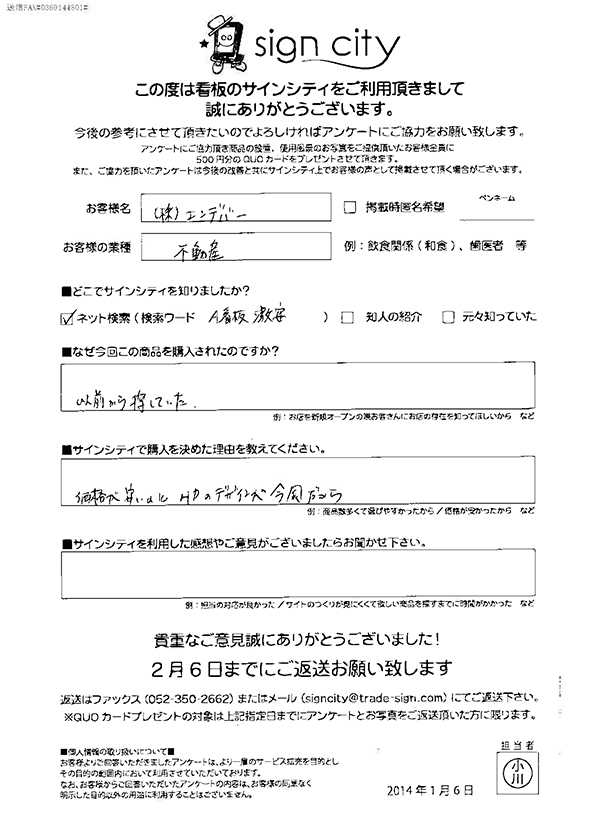 送信FAX#0369144801#
sign city
この度は看板のサインシティをご利用頂きまして
誠にありがとうございます。
今後の参考にさせて頂きたいのでよろしければアンケートにご協力をお願い致します。
アンケートにご協力頂き商品の設置、使用風景のお写真をご提供頂いたお客様全員に
500円分のQUOカードをプレゼントさせて頂きます。
また、ご協力を頂いたアンケートは今後の改善と共にサインシティ上でお客様の声として掲載させて頂く場合がございます。
お客様名 (株)エンデバー □ 掲載時匿名希望 ペンネーム
お客様の業種 不動産 例：飲食関係(和食)、歯医者 等
■どこでサインシティを知りましたか？
☑ネット検索(検索ワード A看板 激安 ) □ 知人の紹介 □ 元々知っていた
■なぜ今回この商品を購入されたのですか？
以前から探していた.
例：お店を新規オープンの為お客さんにお店の存在を知ってほしいから など
■サインシティで購入を決めた理由を教えてください。
価格が安いのと HPのデザインが今風だから
例：商品数多くて選びやすかったから／価格が安かったから など
■サインシティを利用した感想やご意見がございましたらお聞かせ下さい。
例：担当の対応が良かった／サイトのつくりが見にくくて欲しい商品を探すまでに時間がかかった など
貴重なご意見誠にありがとうございました！
2月6日までにご返送お願い致します
返送はファックス(052-350-2662)またはメール(signcity@trade-sign.com)にてご返送下さい。
※QUOカードプレゼントの対象は上記指定日までにアンケートとお写真をご返送頂いた方に限ります。
■個人情報の取り扱いについて■
お客様よりご回答いただきましたアンケートは、より一層のサービス拡充を目的とし
その目的の範囲内において利用させていただいております。
なお、お客様からご回答いただいたアンケートの内容は、お客様の同意なく
明示した目的以外の用途に利用することはございません。
2014年1月6日
担当者
小川